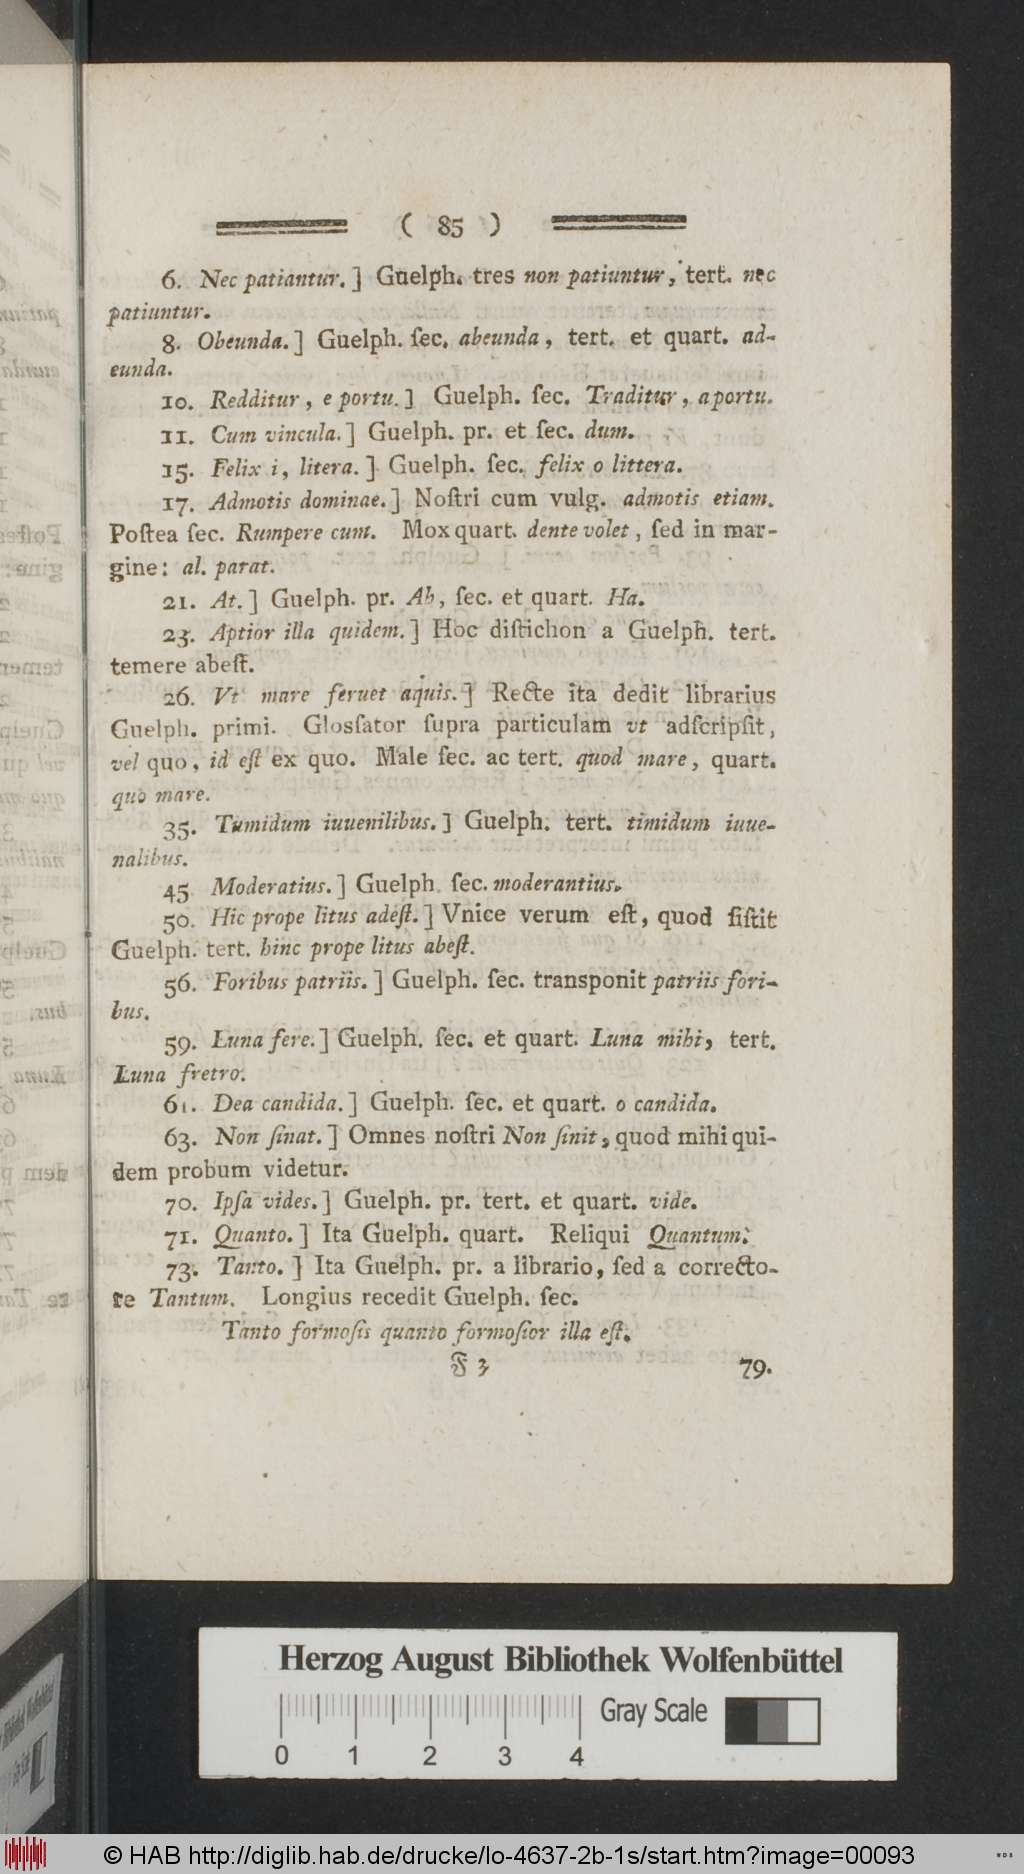 ( 85 )
6. Nec patiantur.] Guelph. tres non patiuntur, tert. nec
patiuntur.
8. Obeunda.] Guelph. ſec. abeunda, tert. et quart. ad-
eunda.
10. Redditur, e portu.] Guelph. ſec. Traditur, a portu.
11. Cum vincula.] Guelph. pr. et ſec. dum.
15. Felix i, litera.] Guelph. ſec. felix o littera.
17. Admotis dominae.] Noſtri cum vulg. admotis etiam.
Poſtea ſec. Rumpere cum. Mox quart. dente volet, ſed in mar-
gine: al. parat.
21. At.] Guelph. pr. Ab, ſec. et quart. Ha.
23. Aptior illa quidem.] Hoc diſtichon a Guelph. tert.
temere abeſt.
26. Vt mare feruet aquis.] Recte ita dedit librarius
Guelph. primi. Glosſator ſupra particulam vt adſcripſit,
vel quo, id eſt ex quo. Male ſec. ac tert. quod mare, quart.
quo mare.
35. Tumidum iuuenilibus.] Guelph. tert. timidum iuue-
nalibus.
45 Moderatius.] Guelph. ſec. moderantius.
50. Hic prope litus adeſt.] Vnice verum eſt, quod ſiſtit
Guelph. tert. hinc prope litus abeſt.
56. Foribus patriis.] Guelph. ſec. transponit patriis fori-
bus.
59. Luna fere.] Guelph. ſec. et quart. Luna mihi, tert.
Luna fretro.
61. Dea candida.] Guelph. ſec. et quart. o candida.
63. Non ſinat.] Omnes noſtri Non ſinit, quod mihi qui-
dem probum videtur.
70. Ipſa vides.] Guelph. pr. tert. et quart. vide.
71. Quanto.] Ita Guelph. quart. Reliqui Quantum.
73. Tanto.] Ita Guelph. pr. a librario, ſed a correcto-
re Tantum. Longius recedit Guelph. ſec.
Tanto formoſis quanto formoſior illa eſt.
F 3 79.
Herzog August Bibliothek Wolfenbüttel
Gray Scale
0 1 2 3 4
© HAB http://diglib.hab.de/drucke/lo-4637-2b-1s/start.htm?image=00093